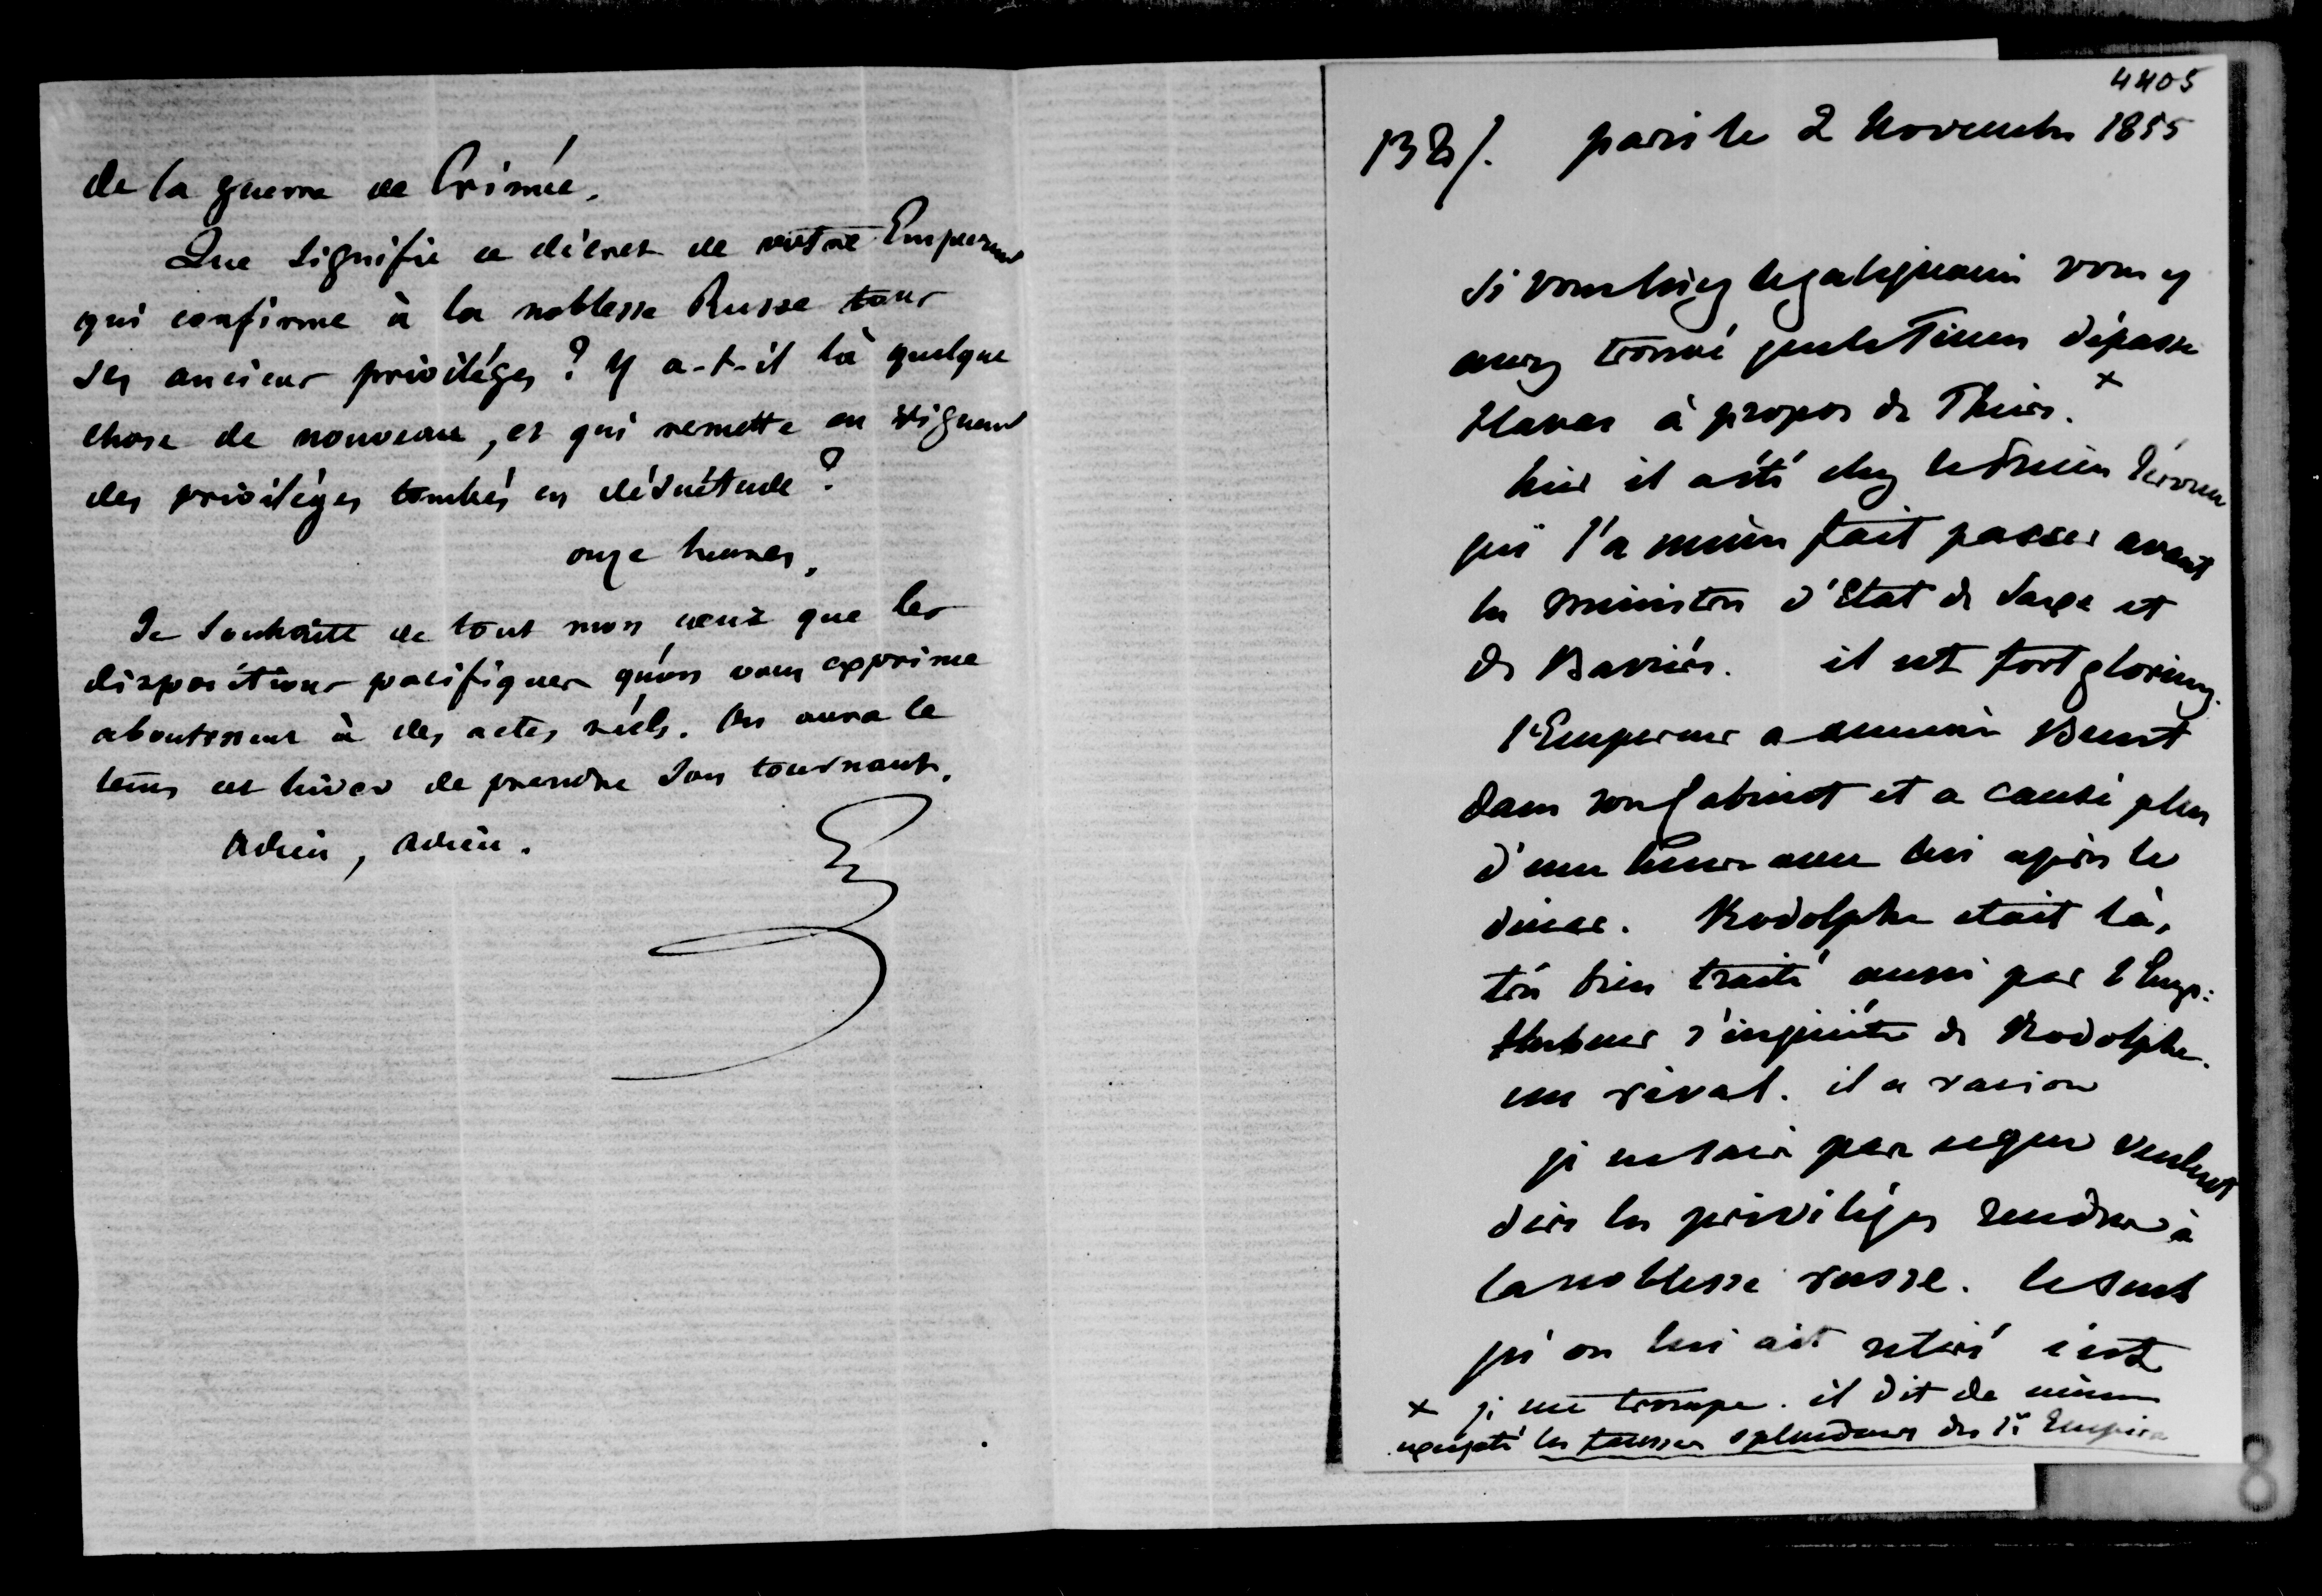 de la guerre de Crimée.
Que signifie ce décret de votre Empereur
qui confirme à la noblesse Russe tous
ses anciens privilèges? Y a-t-il là quelque
chose de nouveau, et qui remette en vigueur
des privilèges tombés en désuétude?
onze heures.
Je souhaite de tout mon coeur que les
dispositions pacifiques qu'on vous exprime
aboutissent à des actes réels. On aura le
tems cet hiver de prendre son tournant.
Adieu, Adieu.
4405
138/. paris le 2 Novembre 1855
Si vous lisiez le galignani vous y
auriez trouvé que le Times dépasse
Havas à propos de Thiers. x
hier il a été chez le
qui l'a même fait passer avant
les ministres d'Etat de Saxe et
de Bavière. il est fort glorieux.
l'Empereur a emmené Beust
dans son Cabinet et a causé plus
d'une heure avec lui après le
diner. Rodolphe etait là,
très bien traité aussi par l'Emp:
s'inquiète de Rodolphe.
un rival. il a raison
je ne sais pas ce que veulent
dire les privilèges rendus à
la noblesse russe. le seul
qu'on lui ait retiré c'est
x je me trompe. il dit de même
excepté les fausses splendeurs du 1er Empire
8